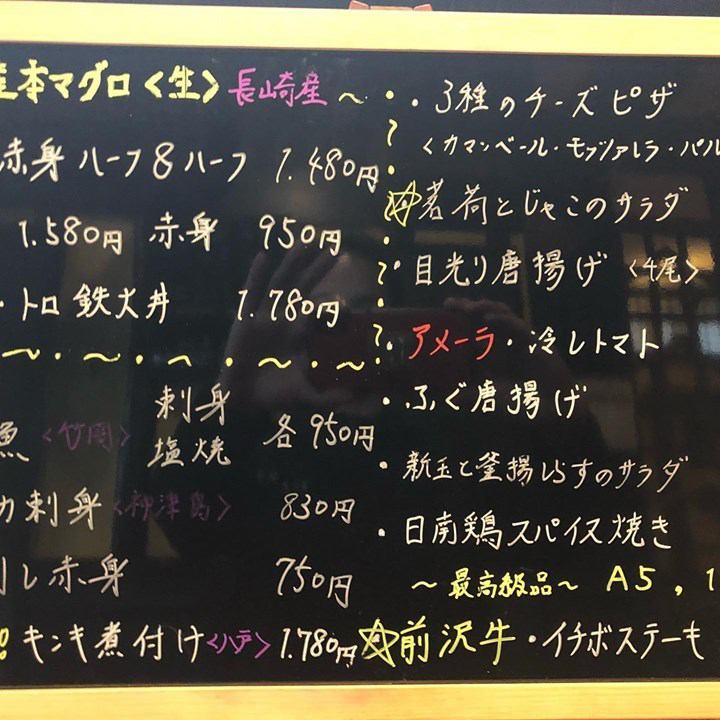 本マグロ〈生〉長崎産〜
赤身 ハーフ&ハーフ 1.480円
1.580円 赤身 950円
・トロ鉄火丼 1.780円
魚〈竹岡〉刺身 塩焼 各950円
刺身〈神津島〉830円
し赤身 750円
キンキ煮付け〈八戸〉1.780円
・3種のチーズピザ
〈カマンベール・モッツァレラ・パル
☆茗荷とじゃこのサラダ
・目光り唐揚げ〈4尾〉
・アメーラ・冷しトマト
・ふぐ唐揚げ
・新玉と釜揚しらすのサラダ
・日南鶏スパイス焼き
〜最高級品〜 A5,1
☆前沢牛・イチボステーキ